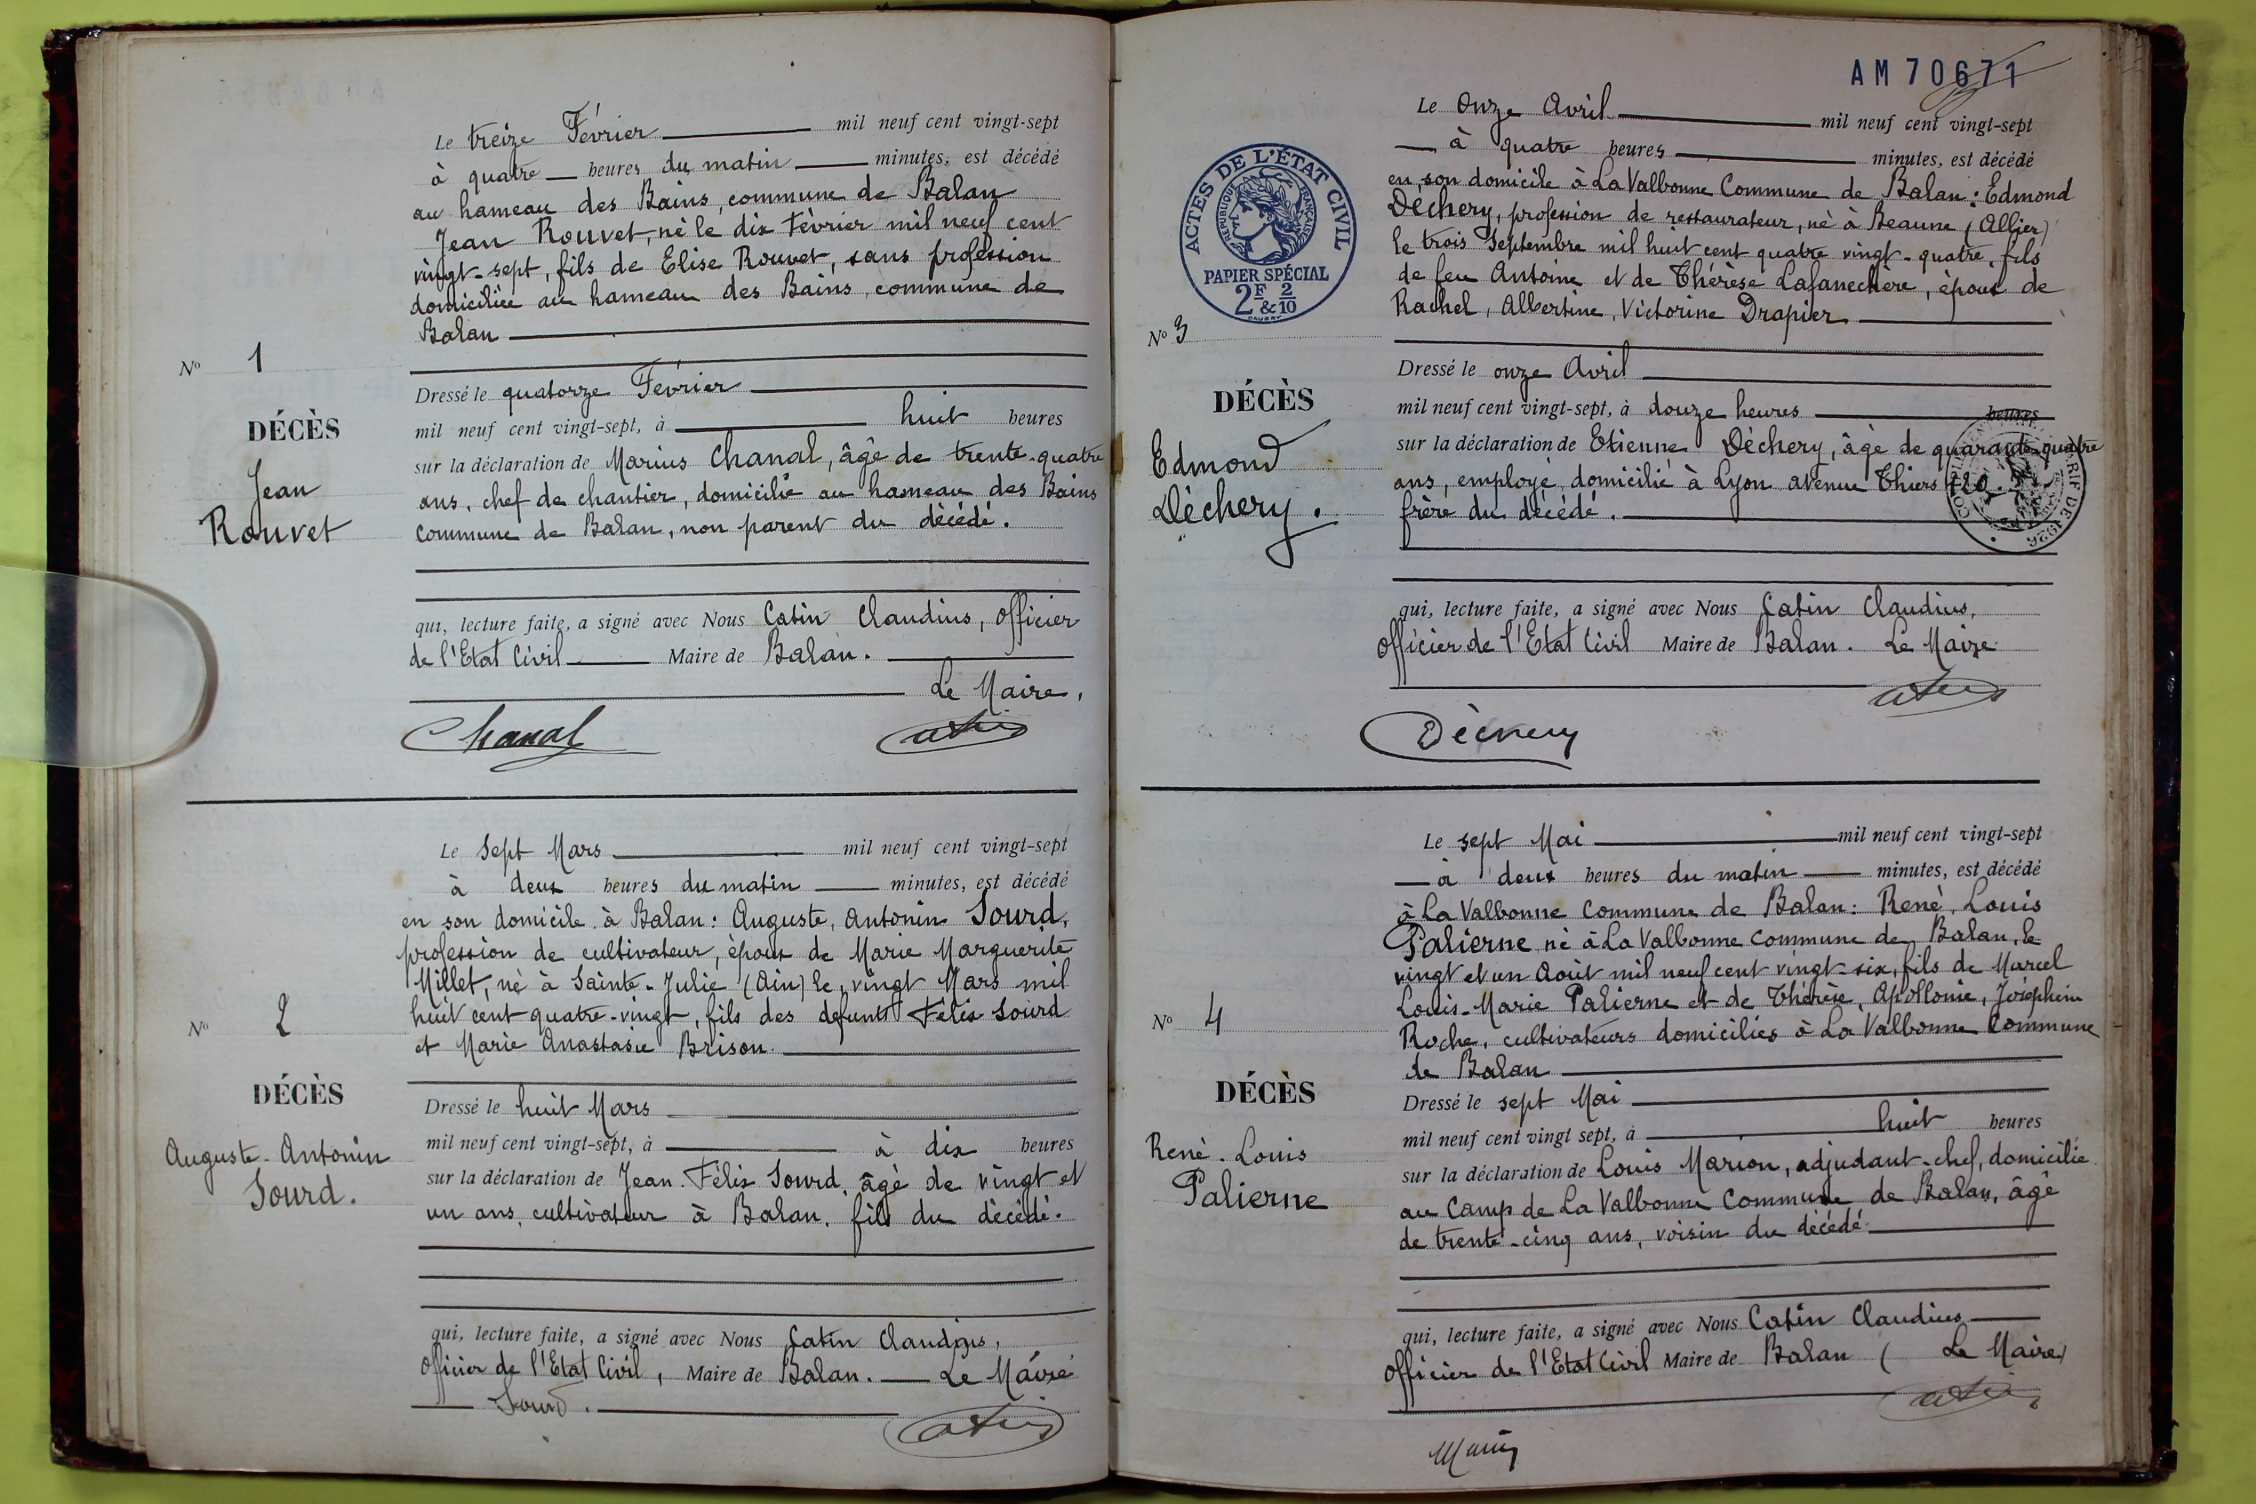 Le treize Février mil neuf cent vingt-sept
à quatre heures du matin minutes, est décédé
au hameau des Bains, commune de Balan
Jean Rouvet, né le dix Février mil neuf cent
vingt-sept, fils de Elise Rouvet, sans profession
domiciliée au hameau des Bains, commune de
Balan
No 1
DÉCÈS
Jean
Rouvet
Dressé le quatorze Février
mil neuf cent vingt-sept, à huit heures
sur la déclaration de Marius Chanal, âgé de trente-quatre
ans, chef de chantier, domicilié au hameau des Bains
commune de Balan, non parent du décédé.
qui, lecture faite, a signé avec Nous Catin Claudius, officier
de l'Etat Civil Maire de Balan.
Le Maire,
Chanal Catin
Le sept Mars mil neuf cent vingt-sept
à deux heures du matin minutes, est décédé
en son domicile à Balan : Auguste, Antonin Sourd,
profession de cultivateur, époux de Marie Marguerite
Millet, né à Sainte-Julie (Ain) le vingt Mars mil
huit cent quatre-vingt, fils des defunts Félix Sourd
et Marie Anastasie Brison.
No 2
DÉCÈS
Auguste-Antonin
Sourd.
Dressé le huit Mars
mil neuf cent vingt-sept, à à dix heures
sur la déclaration de Jean-Félix Sourd, âgé de vingt et
un ans, cultivateur à Balan, fils du décédé.
qui, lecture faite, a signé avec Nous Catin Claudius,
officier de l'Etat Civil, Maire de Balan. Le Maire
Sourd.
Catin
AM 70671
Le onze Avril mil neuf cent vingt-sept
à quatre heures minutes, est décédé
en son domicile à La Valbonne Commune de Balan : Edmond
Déchery, profession de restaurateur, né à Beaune (Allier)
le trois Septembre mil huit cent quatre vingt-quatre, fils
de feu Antoine et de Thérèse Lafanechère, époux de
Rachel, Albertine, Victorine Drapier
ACTES DE L'ÉTAT CIVIL
RÉPUBLIQUE FRANÇAISE
PAPIER SPÉCIAL
2F & 2/10
No 3
DÉCÈS
Edmond
Déchery.
Dressé le onze Avril
mil neuf cent vingt-sept, à douze heures heures
sur la déclaration de Etienne Déchery, âgé de quarante-quatre
ans, employé, domicilié à Lyon avenue Thiers 120
frère du décédé.
qui, lecture faite, a signé avec Nous Catin Claudius,
officier de l'Etat Civil Maire de Balan. Le Maire
Catin
Déchery
Le sept Mai mil neuf cent vingt-sept
à deux heures du matin minutes, est décédé
à La Valbonne Commune de Balan : René, Louis
Palierne né à La Valbonne commune de Balan, le
vingt et un Août mil neuf cent vingt-six, fils de Marcel
Louis-Marie Palierne et de Thérèse, Apollonie, Joséphine
Roche, cultivateurs domiciliés à La Valbonne Commune
de Balan
No 4
DÉCÈS
René-Louis
Palierne
Dressé le sept Mai
mil neuf cent vingt sept, à huit heures
sur la déclaration de Louis Marion, adjudant-chef, domicilié
au Camp de La Valbonne Commune de Balan, âgé
de trente-cinq ans, voisin du décédé
qui, lecture faite, a signé avec Nous Catin Claudius
officier de l'Etat Civil Maire de Balan ( Le Maire)
Catin